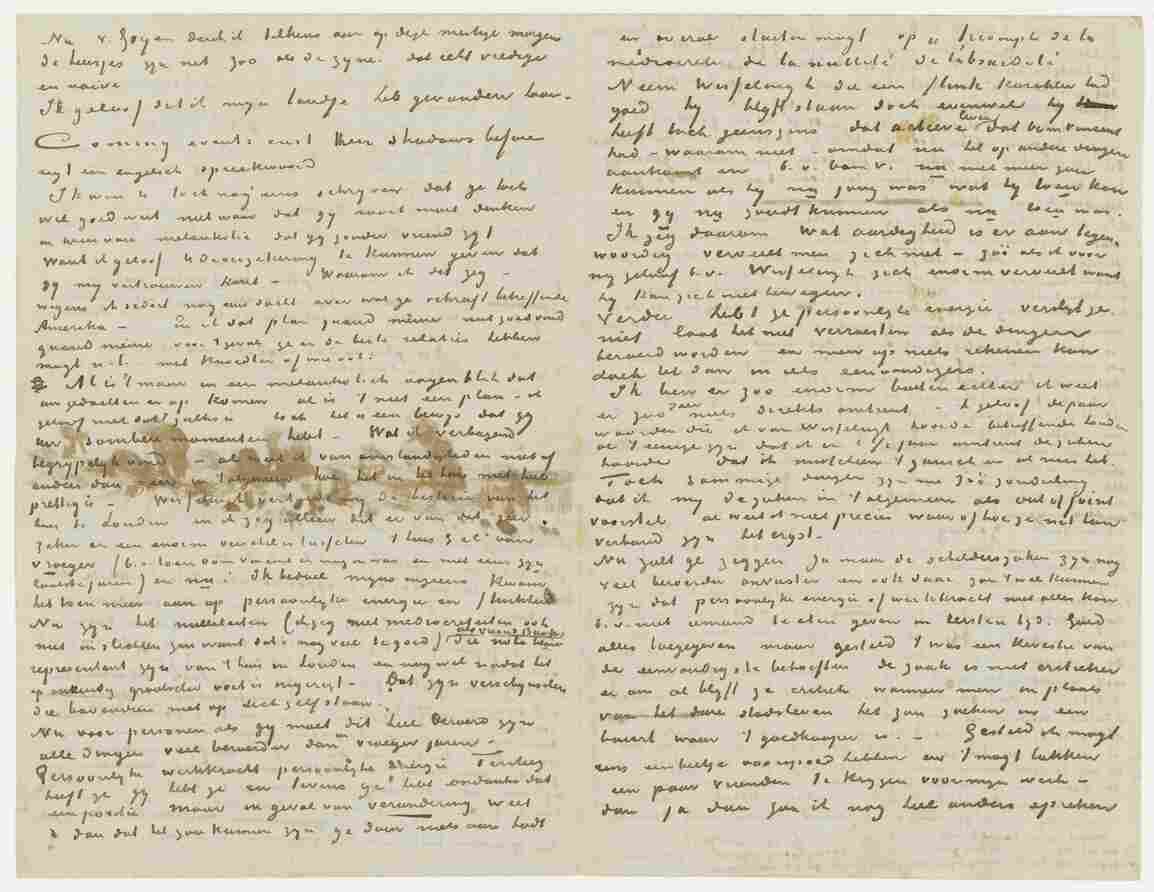 Nu v. Goyen dacht ik telkens aan op deze mistige morgen
de huisjes zyn net zoo als de zyne. dat echt vredige
en naive
Ik geloof dat ik myn landje heb gevonden hoor.
Coming events cast their shadows before
zegt een engelsch spreekwoord
Ik wou U toch nog eens schryven dat ge toch
wel goed weet niet waar dat gy nooit moet denken
in uren van melankolie dat gy zonder vriend zyt
Want ik geloof U de verzekering te kunnen geven dat
gy myn vertrouwen hebt – Waarom ik dit zeg –
wegens ik sedert nog eens dacht over wat ge schreeft betreffende
Amerika – En ik dat plan quand même niet goed vond
quand même voor 't geval ge er de beste relaties hebben
mogt n.l. met Knoedler of me ook.
Al is 't maar in een melankoliek oogenblik dat
zoo gedachten er op komen al is 't niet een plan – ik
geloof niet dat 't zulks is toch het is een bewys dat gy
sombere momenten hebt – Wat ik verbazend
begrypelyk vond – al weet ik van omstandigheden niets of
anders dan zeer in 't algemeen hoe het in het huis niet heel
prettig is – Wisselingh vertelde my de historie van het
huis te Londen en ik zeg alleen dat er van dit zeer
zeker er een enorm verschil is tusschen 't huis G & Cie van
vroeger (b.v. toen Oom Vincent er nog in was en met eens zyn
laatste jaren) en nu. Ik bedoel myns inziens kwam
het toen meer aan op persoonlyke energie en flinkheid
Nu zyn het nulliteiten (ik zeg niet mediocriteiten ook
niet insolieden zou want dat is nog veel te goed) als vriend Bock
die nota bene
representant zyn van 't huis in Londen en nog wel nadat het
op onkundig grootscher voet is ingerigt – Dat zyn verschynselen
die bovendien niet op zich zelf staan.
Nu voor personen als gy moet dit heel beroerd zyn
alle dingen veel beroerder dan in vroeger jaren –
Persoonlyke werkkracht persoonlyke energie Tersteeg
heeft ze gy hebt ze en tevens ge hebt ondanks dat
een positie maar in geval van verandering weet
ik dan dat het zou kunnen zyn ge daar niets aan hadt
en overal stuiten mogt op u le comple de la
médiocrité de la nullité de l'absurdité
Neem Wisselingh die een flink karakter had
goed hy blyft staan doch evenwel hy
heeft toch geenszins dat actieve leven dat Oom Vincent
had – waarom niet – omdat nu het op andere dingen
aankomt en b.v. Oom V. nu niet meer zou
kunnen als hy nu jong was wat hy toen kon
en gy nu zoudt kunnen als nu toen was.
Ik zeg daarom wat aardigheid is er aan tegen-
woordig verveelt men zich niet – zoo als ik voor
my geloof b.v. Wisselingh zich enorm verveelt want
hy kan zich niet bewegen.
Verder hebt ge persoonlyke energie verslyt ze
niet laat het niet verroesten als de dingen
beroerd worden en men op niets rekenen kan
doch let dan in iets eenvoudigers.
Ik ben er zoo enorm buiten echter ik weet
er zoo zeer niets direkts omtrent – ik geloof de paar
woorden die ik van Wisselingh hoorde betreffende Londen
de 't eenige zyn dat ik in 1½ jaar omtrent de zaken
hoorde dat ik misschien 't gansch en al mis heb.
Toch sommige dingen zyn me zoo zonderling
dat ik my de zaken in 't algemeen als out of joint
voorstel al weet ik niet precies waar of hoe ze uit hun
verband zyn het ergst.
Nu zult ge zeggen Ja maar de schilderszaken zyn nog
veel beroerder onvaster en ook daar zou 't wel kunnen
zyn dat persoonlyke energie of werkkracht niet alles kon
b.v. niet iemand te eten geven in dezen tyd. Goed
alles toegegeven maar gesteld 't was een kwestie van
de eenvoudigste behoeften de zaak is niet critieker
er om al blyft ze critiek wanneer men in plaats
van het dure stadsleven het zou zoeken in een
buurt waar 't goedkooper is. – Gesteld ik mogt
eens een beetje voorspoed hebben en 't mogt lukken
een paar vrienden te krygen voor myn werk –
dan ja dan zou ik nog heel anders spreken